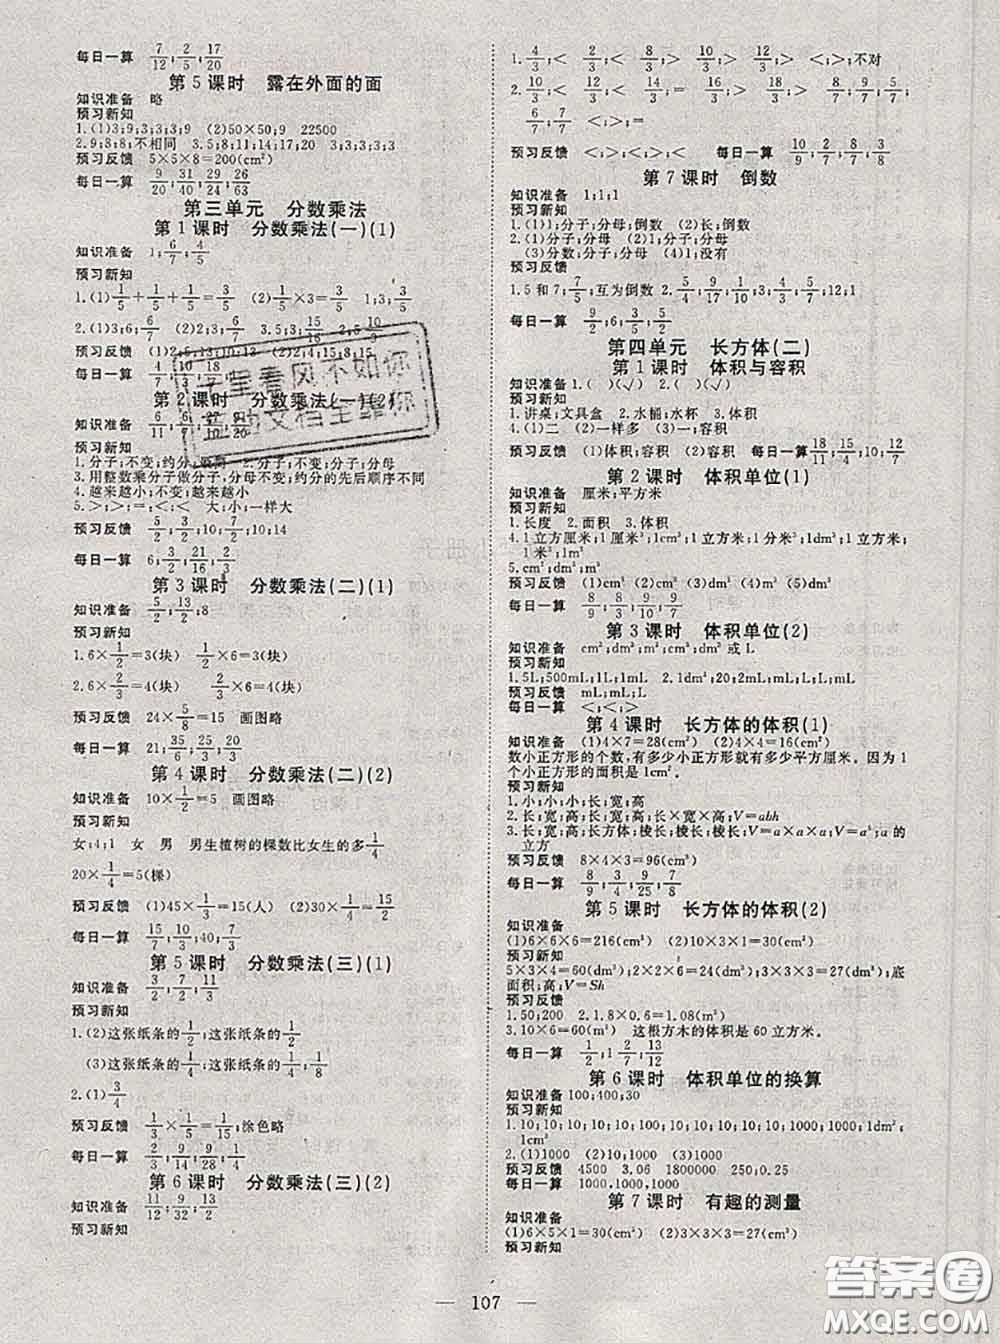 每日一算 7/12;2/5;17/20
第5课时 露在外面的面
知识准备 略
预习新知
1.(1)3;9;3;3;3;9 (2)50×50;9 22500
2.9;8;8;不相同 3.8;11;14;17;20 3;3;3;3;3
预习反馈 5×5×8=200(cm²)
每日一算 9/20;31/40;29/24;26/63
第三单元 分数乘法
第1课时 分数乘法(一)(1)
知识准备 1;6/7;4/5
预习新知
1.(1)1/5+1/5+1/5=3/5 (2)1/5×3=3/5 1;3;3/5
2.(1)3;6/7 (2)2;3;6/7 3.5;3;15/16 2;5;10/9
预习反馈 (1)2;2;
第2课时 分数乘法(一)(2)
预习新知
1.分子;不变;约分 2.约分;分子;分母
3.用整数乘分子做分子,分母不变;约分的先后顺序不同
4.越来越小;不变;越来越小
5.>;>;=;<;< 大;小;一样大
预习反馈 5/2;5/2;10;10/7;14
每日一算 6;13/2
第3课时 分数乘法(二)(1)
知识准备 5/2;13/2;8
预习新知
1.6×1/2=3(块) 1/2×6=3(块)
2.6×2/3=4(块) 2/3×6=4(块)
预习反馈 24×5/8=15 画图略
每日一算 21;35/6;25/3;20/3
第4课时 分数乘法(二)(2)
知识准备 10×1/2=5 画图略
预习新知
女;4;1 女 男 男生植树的棵数比女生的多1/4
20×1/4=5(棵)
预习反馈 (1)45×1/3=15(人) (2)30×1/2=15(人)
每日一算 15/7;10/3;40;7/3
第5课时 分数乘法(三)(1)
知识准备 3/2;7/2;11/3
预习新知
1.(2)这张纸条的1/2;这张纸条的1/2
(3)这张纸条的1/4;这张纸条的1/4
2.(1)3/4
预习反馈 1/3×1/5=1/15;涂色略
每日一算 2/3;9/14;9/28;1/4
第6课时 分数乘法(三)(2)
知识准备 11/12;9/32;2
预习新知
1.4/3;< 2/3;< 8/3;> 5/2;> <;>;不对
2.10/3;8/3;< 4/3;4/3 = 16/3;18/3 > 8/3;9/7;5/7;
6/7;7/7 <;>;=
预习反馈 <;>;<;>;< 每日一算 10/9;2/7;8/7;3/8
第7课时 倒数
知识准备 1;1;1
预习新知
1.(1)1;分子;分母;倒数 (2)长;倒数
2.(1)分子;分母 (2)1;分子;分母
(3)分数;分子;分母 (4)1;没有
预习反馈
1.5和7;7/5;互为倒数
每日一算 9/2;6;3/5;5/2
第四单元 长方体(二)
第1课时 体积与容积
知识准备 1.( )(√) 2.( )(√)
预习新知
1.讲桌;文具盒 2.水桶;水杯 3.体积
4.(1)二 (2)一样多 (3)一;容积
预习反馈 (1)体积;容积 (2)容积 每日一算 18/11;15/4;10;12/7
第2课时 体积单位(1)
知识准备 厘米;平方米
预习新知
1.长度 2.面积 3.体积
4.1立方厘米;1厘米³;1cm³;1立方分米;1分米³;1dm³;1立方米;
1米³;1m³
5.cm³;dm³;m³
预习反馈 (1)cm³ (2)m³ (3)dm³ (4)m³
每日一算 8/9;8/9;3/10;4/9
第3课时 体积单位(2)
知识准备 cm³;dm³;m³;cm³;dm³或L
预习新知
1.5L;500mL;1L;1mL 2.1dm³;20;2mL;L;mL
预习反馈 mL;mL;L
每日一算 <;<;>
第4课时 长方体的体积(1)
知识准备 (1)4×7=28(cm²) (2)4×4=16(cm²)
数小正方形的个数,有多少小正方形就有多少平方厘米。因为1
个小正方形的面积是1cm²。
预习新知
1.小;小;小;长;宽;高
2.长;宽;高;长;宽;高;长×宽×高;V=abh
3.长;宽;高;长方体;棱长;棱长;棱长;V=a×a×a;V=a³;a的
立方
预习反馈 8×4×3=96(cm³)
每日一算 8/9;4/3;9/25;7/8
第5课时 长方体的体积(2)
知识准备
(1)6×6×6=216(cm³) (2)10×3×1=30(cm³)
预习新知
5×3×4=60(dm³);2×2×5=20(dm³);3×3×3=27(dm³);底
面积;高;V=Sh
预习反馈
1.50;200 2.1.8×0.6=1.08(m³)
3.10×6=60(m³) 这根方木的体积是60立方米。
每日一算 1/2;1 2/7;13/12
第6课时 体积单位的换算
知识准备 100;400;30
预习新知
1.10;10;10;10;10;10;10;10;10;10;10;1000;1000;1dm³;
1cm³
2.(1)1000 (2)1000 (3)1000
预习反馈 4500 3.06 1800000 250;0.25
每日一算 1000,1000;1000
第7课时 有趣的测量
知识准备
(1)6×5×1=30(cm³) (2)3×3×3=27(cm³)
预习新知
107
答案圈
MXQE.COM